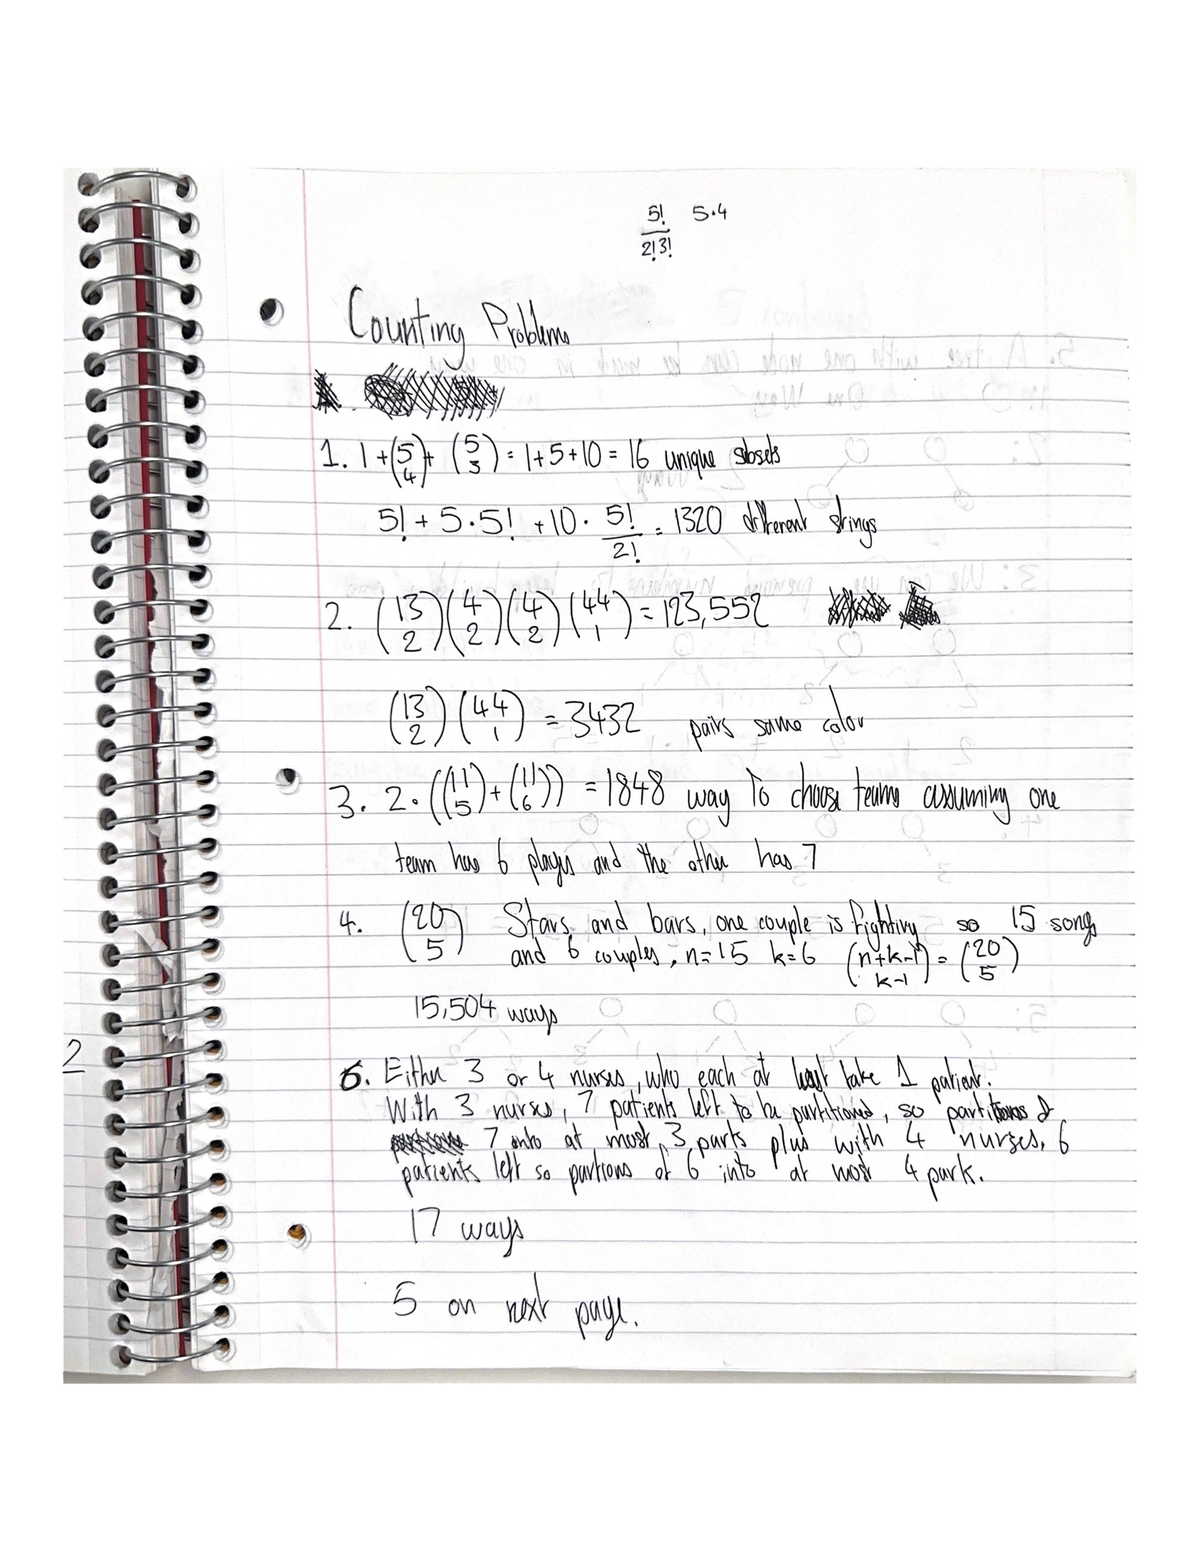 5!/2!3! 5·4
Counting Problems
1. 1 + (5 4) + (5 3) = 1+5+10 = 16 unique subsets
5! + 5·5! + 10 · 5!/2! = 1320 different strings
2. (13 2)(4 2)(4 2)(44 1) = 123,552
(13 2)(44 1) = 3432 pairs same color
3. 2·((11 5)+(11 6)) = 1848 way to choose teams assuming one
team has 6 plays and the other has 7
4. (20 5) Stars and bars, one couple is fighting so 15 songs
and 6 couples, n=15 k=6 (n+k-1 k-1) = (20 5)
15,504 ways
6. Either 3 or 4 nurses, who each at least take 1 patient.
With 3 nurses, 7 patients left to be partitioned, so partitions of
7 into at most 3 parts plus with 4 nurses, 6
patients left so partions of 6 into at most 4 park.
17 ways
5 on next page.
2